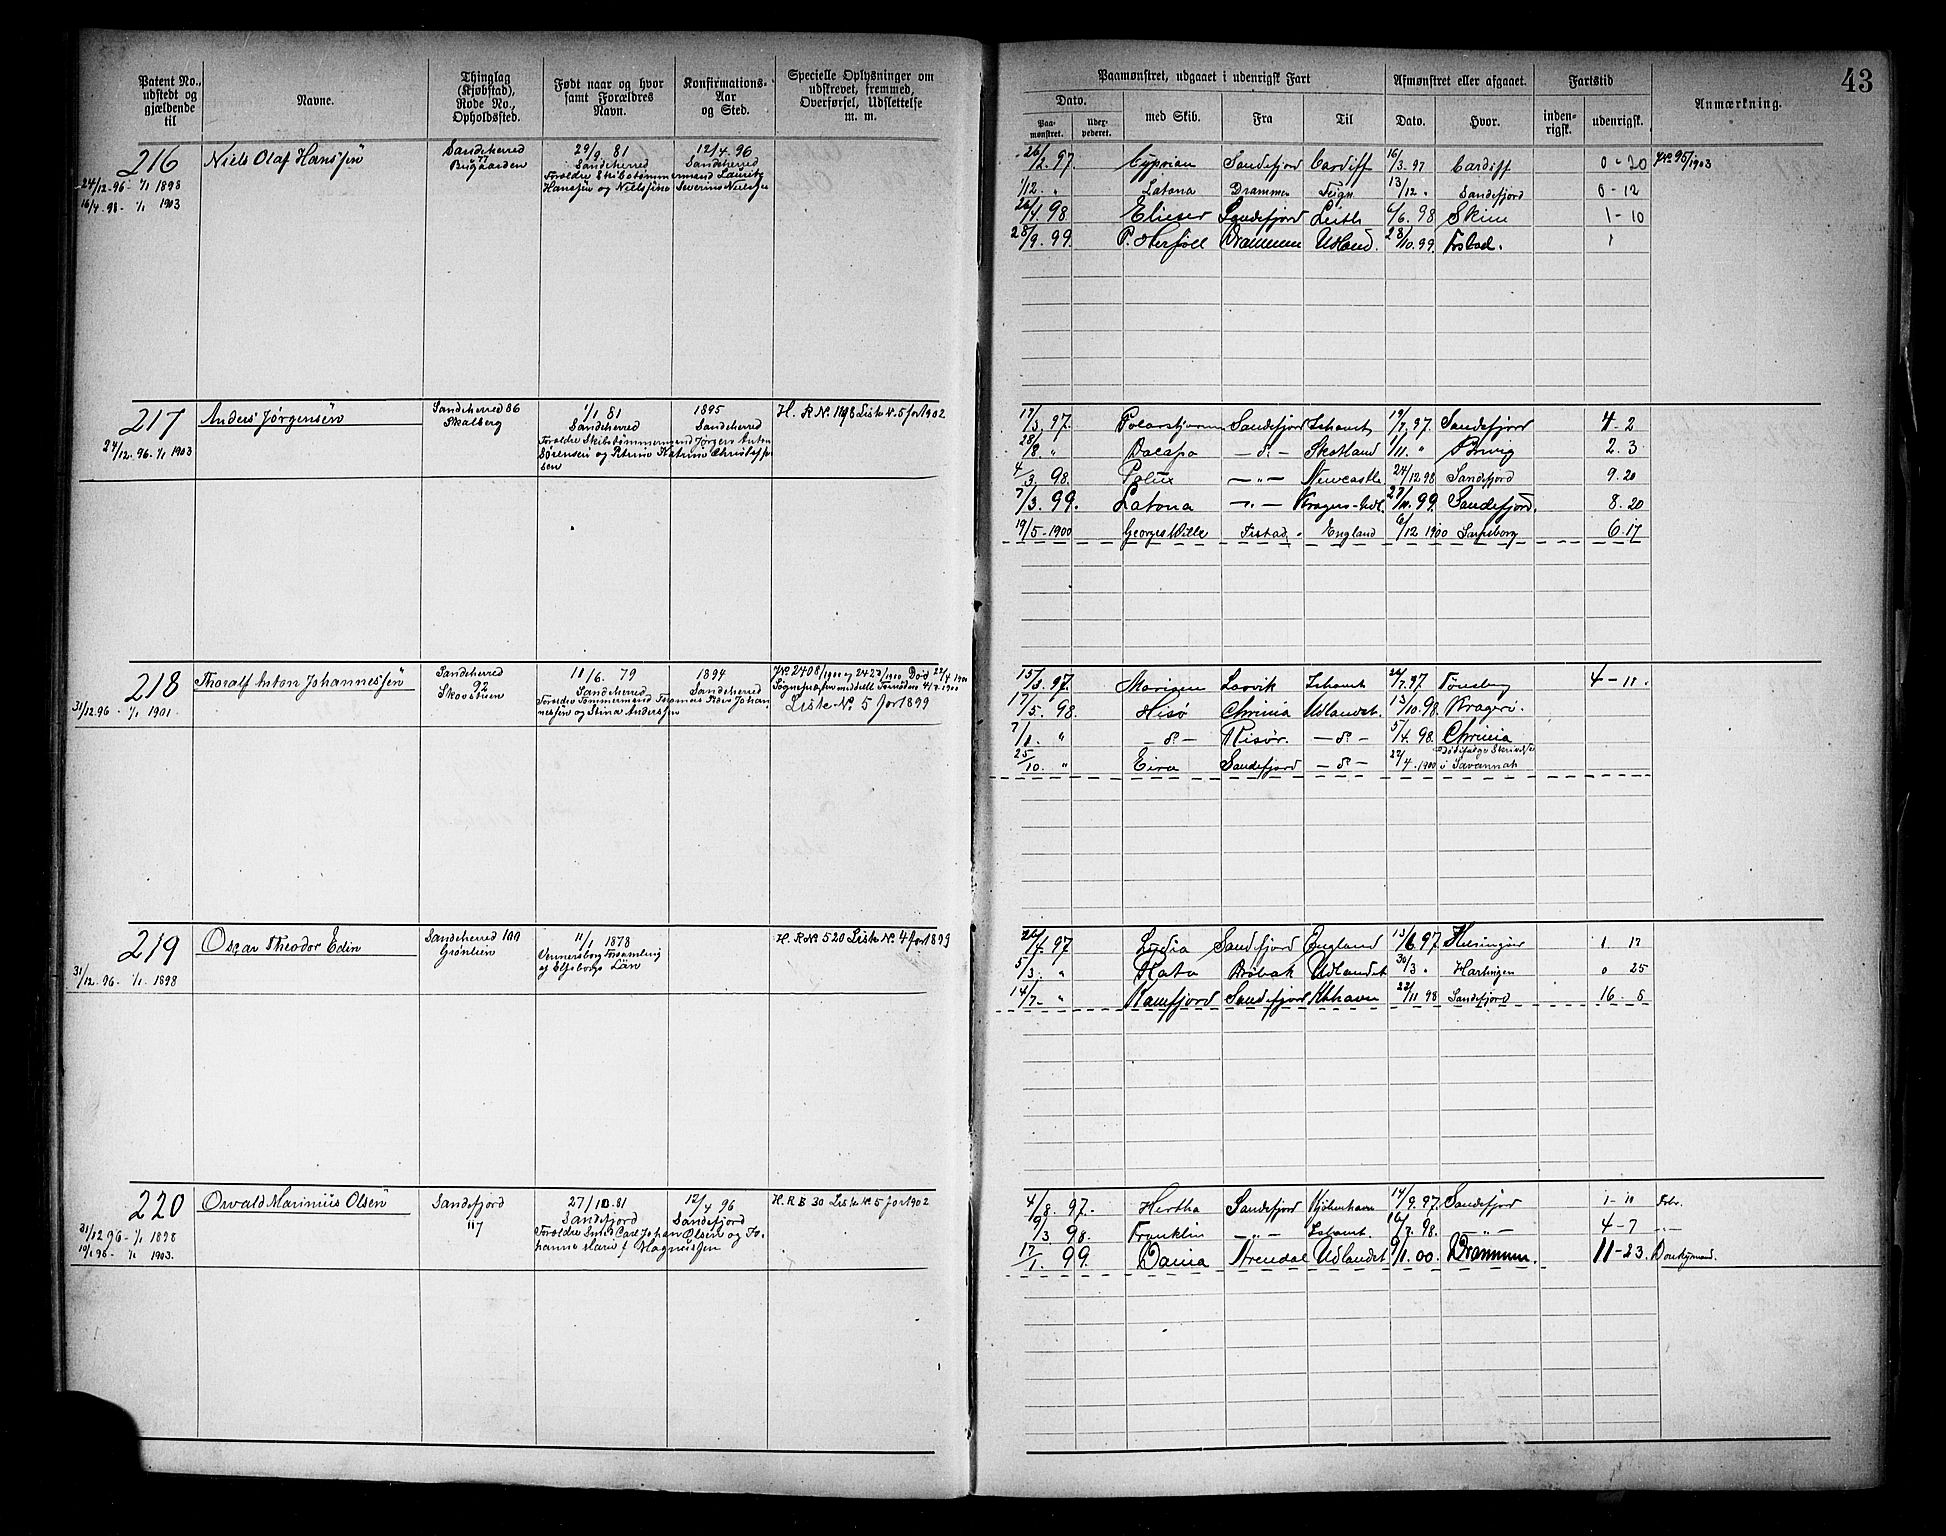 43
Patent No., udstedt og gjældende til
Navne.
Thinglag (Kjøbstad), Rode No., Opholdssted.
Født naar og hvor samt Forældres Navn.
Konfirmations-Aar og Sted.
Specielle Oplysninger om udskrevet, fremmed, Overførsel, Udslettelse m. m.
Paamønstret, udgaaet i udenrigsk Fart
Dato.
Paa-mønstret.
Udex-pederet.
med Skib.
Fra
Til
Afmønstret eller afgaaet.
Dato.
Hvor.
Fartstid
inden-rigsk.
udenrigsk.
Anmærkning.
216 Niels Olaf Hanssen
24/12.96 - 1/1 1898
16/4.98 - 1/1 1903
Sandeherred 77 Bugaarden
29/9 81 Sandeherred
12/4.96 Sandeherred
Foreldre Skibstømmermand Lauritz
Hanssen og Nielssine Severine Nielsen
26/2.97. Cyprian Sandefjord Cardiff 16/3.97 Cardiff 0-20 95/1903
1/12. " Latona Drammen 13/12 " Sandefjord 0-12
26/4.98 Elieser Sandefjord Leith 6/6.98 Skien 1-10
28/9.99. Drammen Udland. 28/10.99. 1
217 Anders Jørgensen
24/12.96. 1/1 1903
Sandeherred 86 Skalberg
1/1 81 Sandeherred
1895 Sandeherred
Foreldre Skibstømmermand Jørgen Anton
Sørensen og Petrine Katrine Christoffersen
H. R No. 1198 Liste No. 5 for 1902
17/3.97. Polarstjernen Sandefjord Ishavet 19/7.97. Sandefjord 4-2
28/8 " Dacapo - d. - Skotland 1/11 " 2.3
4/3.98. Polux - " - Newcastle 24/12 98 Sandefjord 9.20
7/3.99. Latona - " - 27/11.99. Sandefjord. 8.20
19/5-1900 Georges Wille England 6/12 1900 Sarpsborg 6.17
218 Thoralf Anton Johannessen
31/12.96 - 1/1 1901.
Sandeherred 92
11/6. 79 Sandeherred
1894 Sandeherred
Foreldre Tømmermand Thomas Johannessen og Stina Anderssen
No. 2408/1900 og 2423/1900 Død 22/4 1900
Liste No. 5 for 1899
15/3.97. Larvik Ishavet 26/7.97 Tønsberg 4-11.
17/5.98. Hisø Chrinia Udlandet. 13/10.98. Kragerø.
7/1. " - d. - Risør. - d. - 5/4.98. Chrinia
25/10. " Eira Sandefjord - d. - 22/4.1900 i Savannah
219 Oscar Theodor Edin
31/12.96. - 1/1. 1898
Sandeherred 100 Grønlien
11/1 1878
Vennersborg Forsamling
af Elfsborgs Län
H. R No 520 Liste No. 4 for 1899
26/4.97 Lydia Sandefjord England 13/6.97 Helsingør 1. 17
5/3. " Drøbak Udlandet 30/3 " Harlingen 0 25
14/7- " Ramfjord Sandefjord Kbhavn 22/11 98 Sandefjord 16. 8
220 Osvald Marinius Olsen
31/12 96 - 1/1 1898
10/1 98 - 1/1 1903.
Sandefjord 117
27/10.81 Sandefjord
12/4 96 Sandefjord
Foreldre Smed Carl Johan Olsen og Johanne Marie f Magnussen
H. R B 30 Liste No. 5 for 1902
4/8. 97.- Hertha Sandefjord Kjøbenhavn 14/9.97. Sandefjord 1-11
9/3. 98. Franklin - " - Ishavet. 16/7.98. - " - 4-7 - " -
17/1. 99. Dania Arendal Udlandet 9/1.00. Drammen. 11-23. Donkymand.